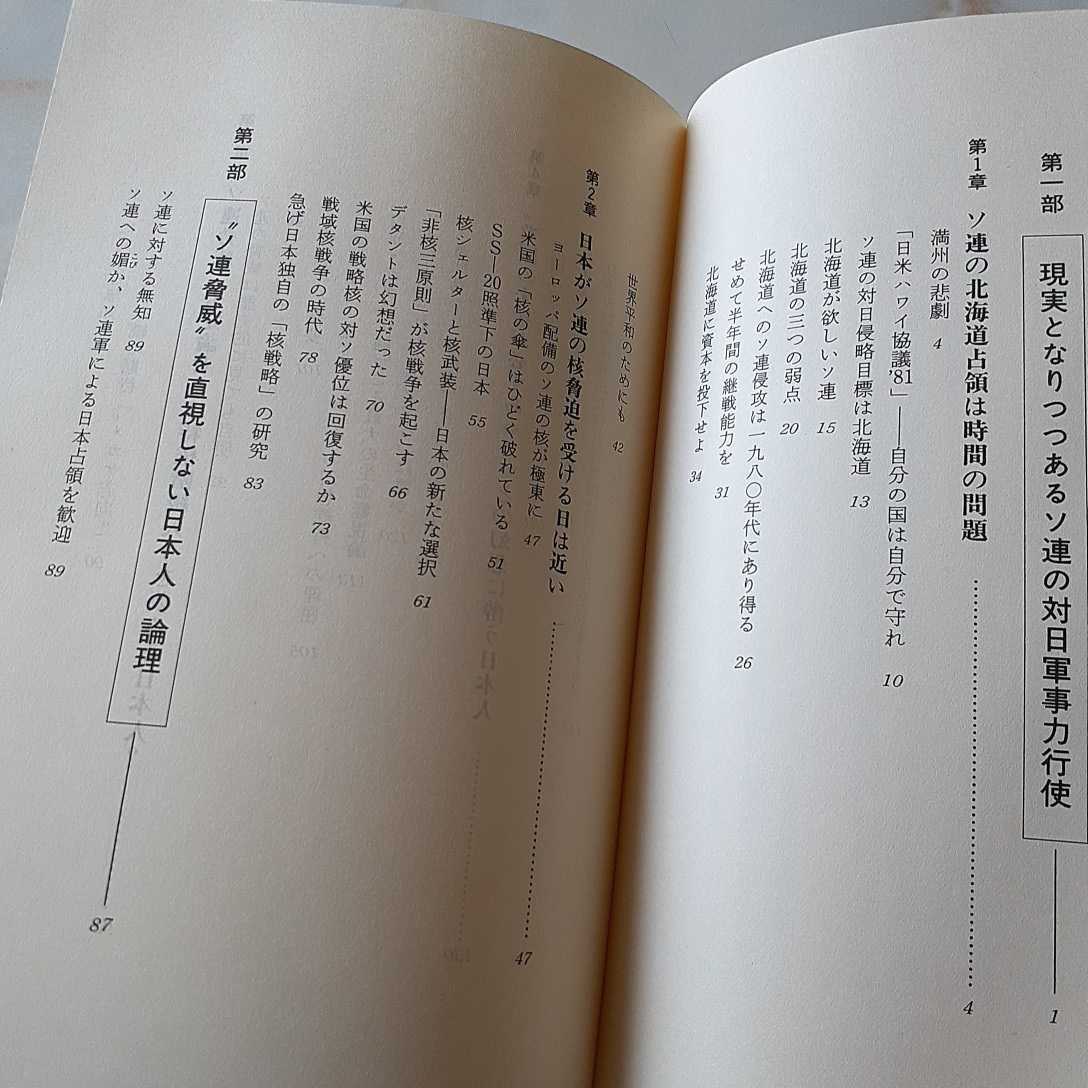 第一部 現実となりつつあるソ連の対日軍事力行使 1
第1章 ソ連の北海道占領は時間の問題 4
満州の悲劇 4
「日米ハワイ協議'81」——自分の国は自分で守れ 10
ソ連の対日侵略目標は北海道 13
北海道が欲しいソ連 15
北海道の三つの弱点 20
北海道へのソ連侵攻は一九八〇年代にあり得る 26
せめて半年間の継戦能力を 31
北海道に資本を投下せよ 34
世界平和のためにも 42
第2章 日本がソ連の核脅迫を受ける日は近い 47
ヨーロッパ配備のソ連の核が極東に 47
米国の「核の傘」はひどく破れている 51
SS—20照準下の日本 55
核シェルターと核武装——日本の新たな選択 61
「非核三原則」が核戦争を起こす 66
デタントは幻想だった 70
米国の戦略核の対ソ優位は回復するか 73
戦域核戦争の時代 78
急げ日本独自の「核戦略」の研究 83
第二部 〝ソ連脅威〟を直視しない日本人の論理 87
ソ連に対する無知 89
ソ連への媚こびか、ソ連軍による日本占領を歓迎 89